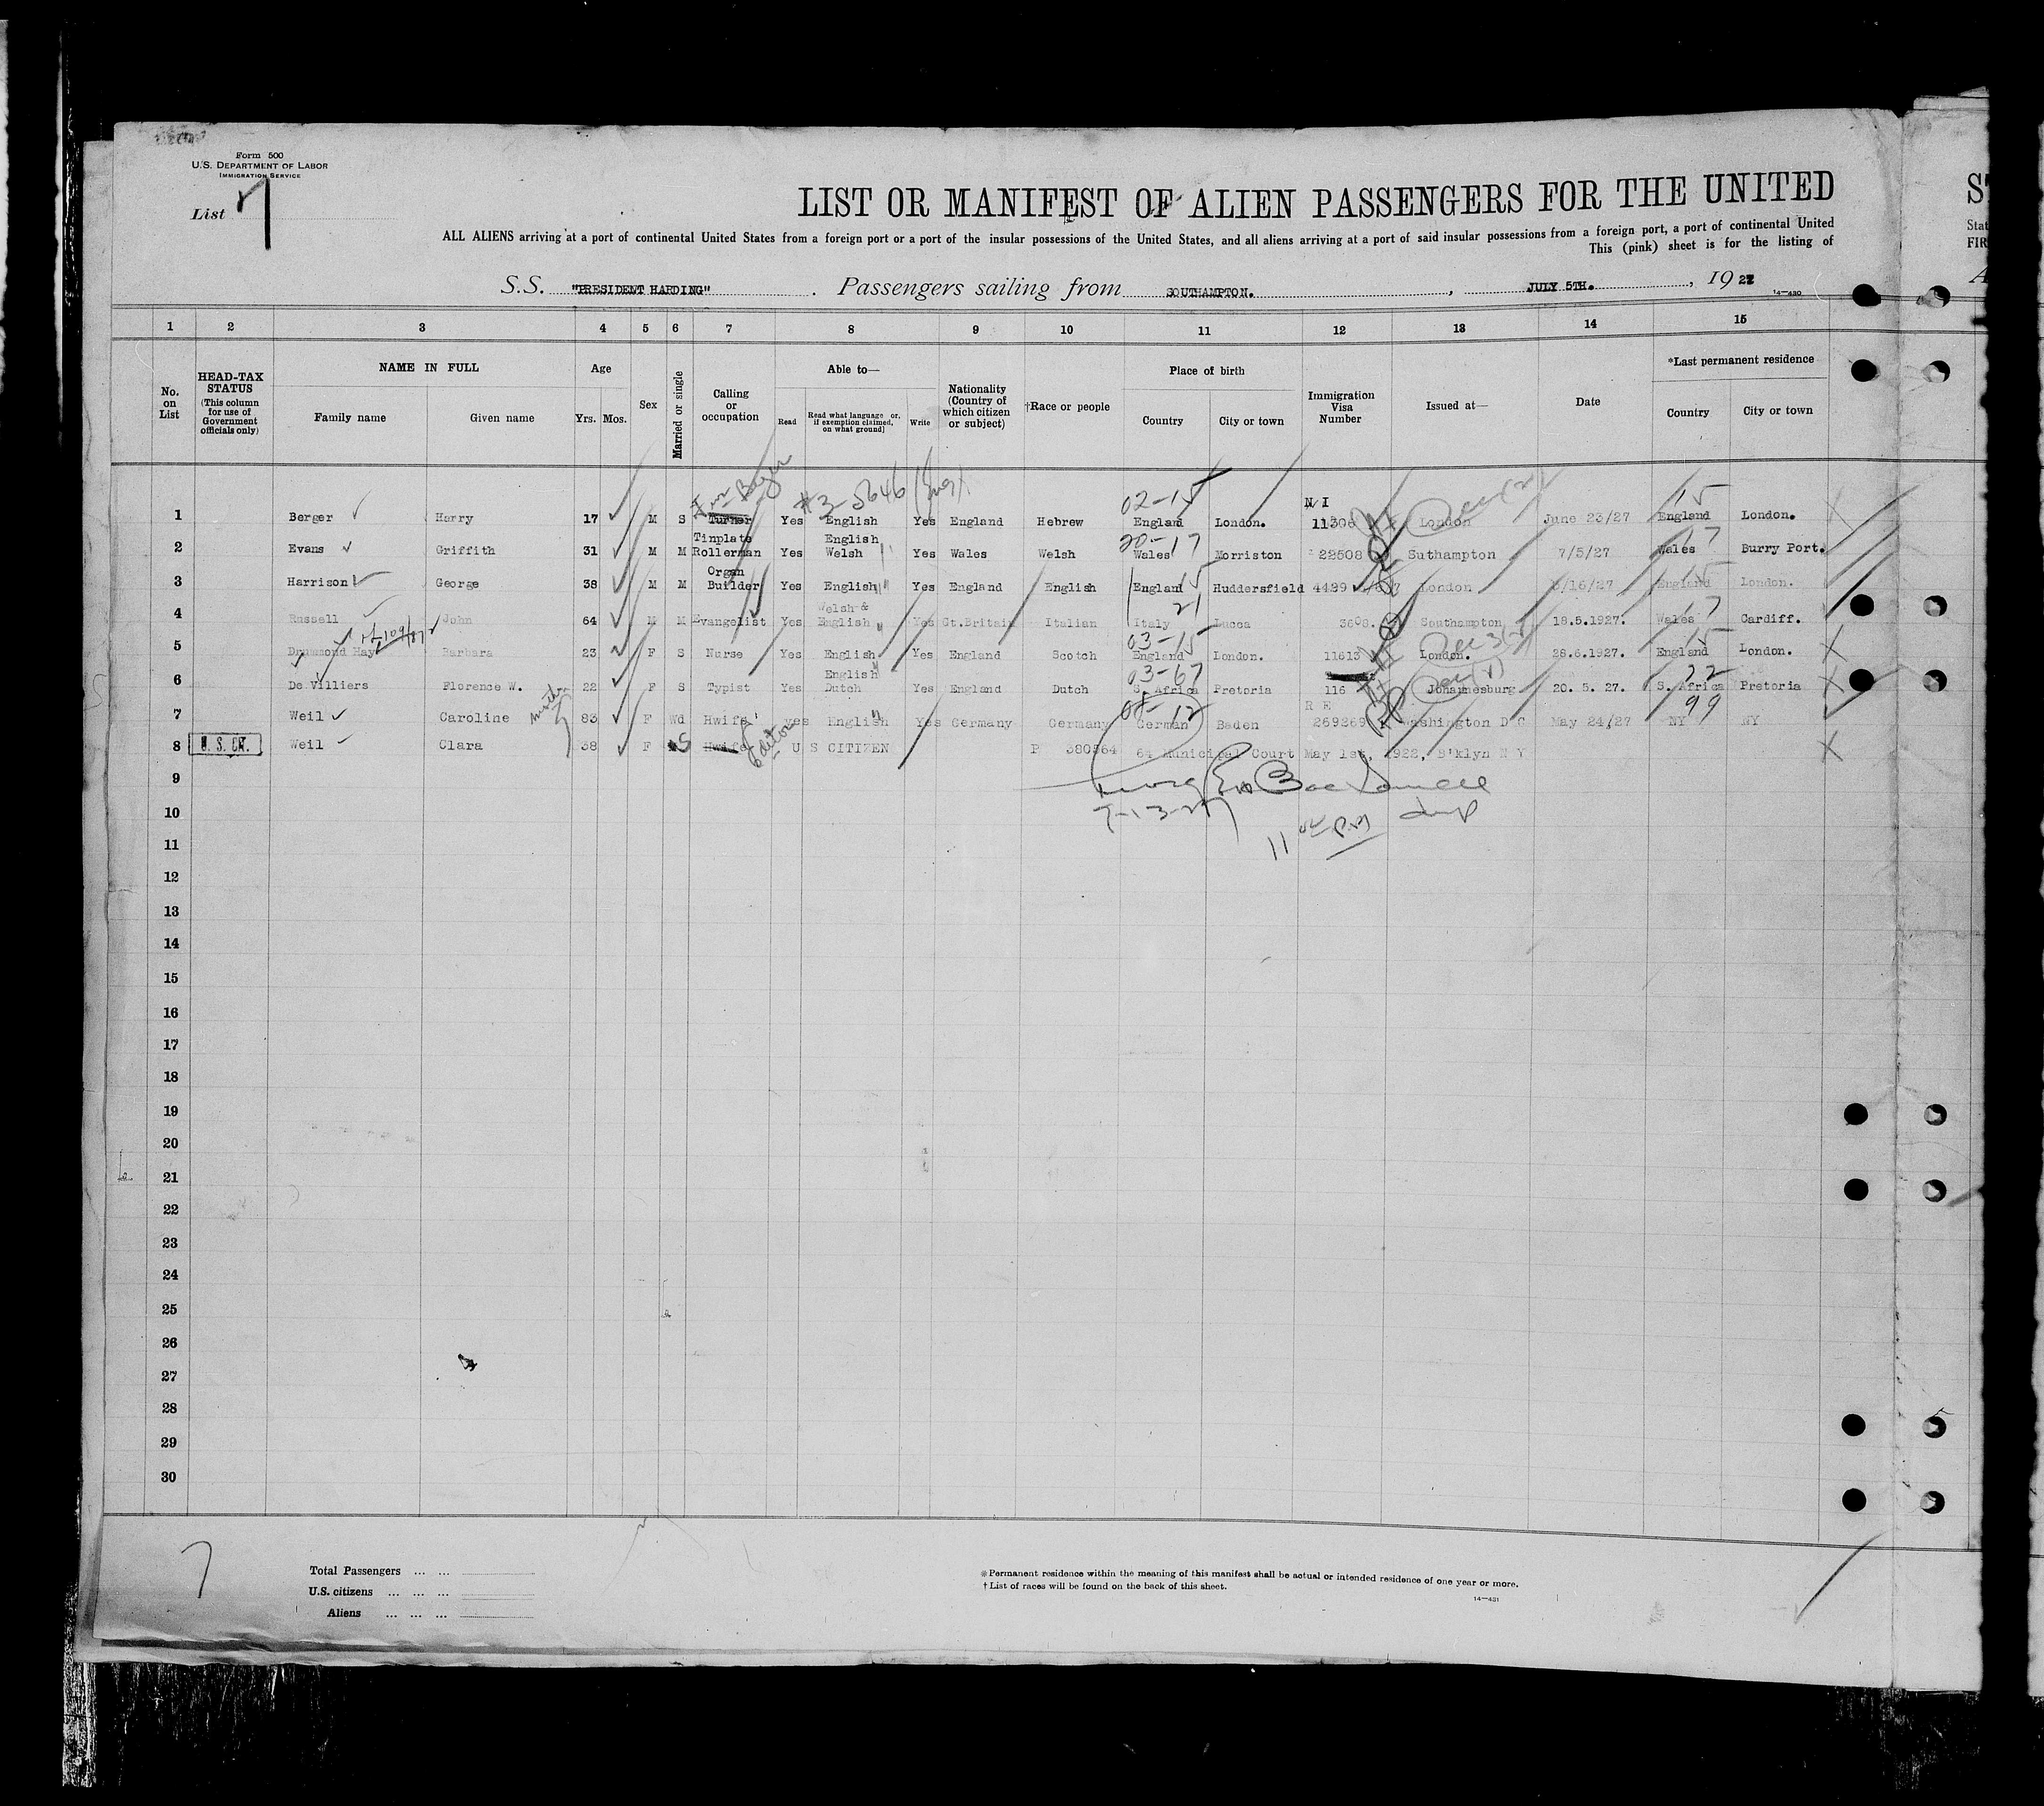 Form 500
U.S. DEPARTMENT OF LABOR
IMMIGRATION SERVICE
List 7
LIST OR MANIFEST OF ALIEN PASSENGERS FOR THE UNITED
ALL ALIENS arriving at a port of continental United States from a foreign port or a port of the insular possessions of the United States, and all aliens arriving at a port of said insular possessions from a foreign port, a port of continental United
This (pink) sheet is for the listing of
S.S. "PRESIDENT HARDING" . Passengers sailing from SOUTHAMPTON. , JULY 5TH. , 1927
14—430
1 2 3 4 5 6 7 8 9 10 11 12 13 14 15
No. on List
HEAD-TAX STATUS (This column for use of Government officials only)
NAME IN FULL
Family name Given name
Age
Yrs. Mos.
Sex
Married or single
Calling or occupation
Able to—
Read Read what language or, if exemption claimed, on what ground) Write
Nationality (Country of which citizen or subject)
†Race or people
Place of birth
Country City or town
Immigration Visa Number
Issued at—
Date
*Last permanent residence
Country City or town
#3-5646 02-15 N I 15
1 Berger Harry 17 M S Turner Yes English Yes England Hebrew England London. 11306 London June 23/27 England London.
Tinplate English 20-17 17
2 Evans Griffith 31 M M Rollerman Yes Welsh Yes Wales Welsh Wales Morriston 22508 Suthampton 7/5/27 Wales Burry Port.
Organ 15 15
3 Harrison George 38 M M Builder Yes English Yes England English England Huddersfield 4429 London /16/27 England London.
Welsh & 21 17
4 Russell John 64 M M Evangelist Yes English Yes Gt.Britain Italian Italy Lucca 3608. Southampton 18.5.1927. Wales Cardiff.
03-15 15
5 Drummond Hay Barbara 23 F S Nurse Yes English Yes England Scotch England London. 11613 London. 28.6.1927. England London.
English 03-67 22
6 De Villiers Florence W. 22 F S Typist Yes Dutch Yes England Dutch S. Africa Pretoria 116 Johannesburg 20. 5. 27. S. Africa Pretoria
mother 08-12 R E 99
7 Weil Caroline 83 F Wd Hwife yes English Yes Germany Germany German Baden 269269 Washington D C May 24/27 NY NY
8 U. S. CIT. Weil Clara 38 F S Hwife Editor U S CITIZEN P 380564 64 Municipal Court May 1st, 1922, B'klyn N Y
9
7-13-27
10
11
12
13
14
15
16
17
18
19
20
21
22
23
24
25
26
27
28
29
30
7
Total Passengers
U.S. citizens
Aliens
*Permanent residence within the meaning of this manifest shall be actual or intended residence of one year or more.
†List of races will be found on the back of this sheet.
14—431